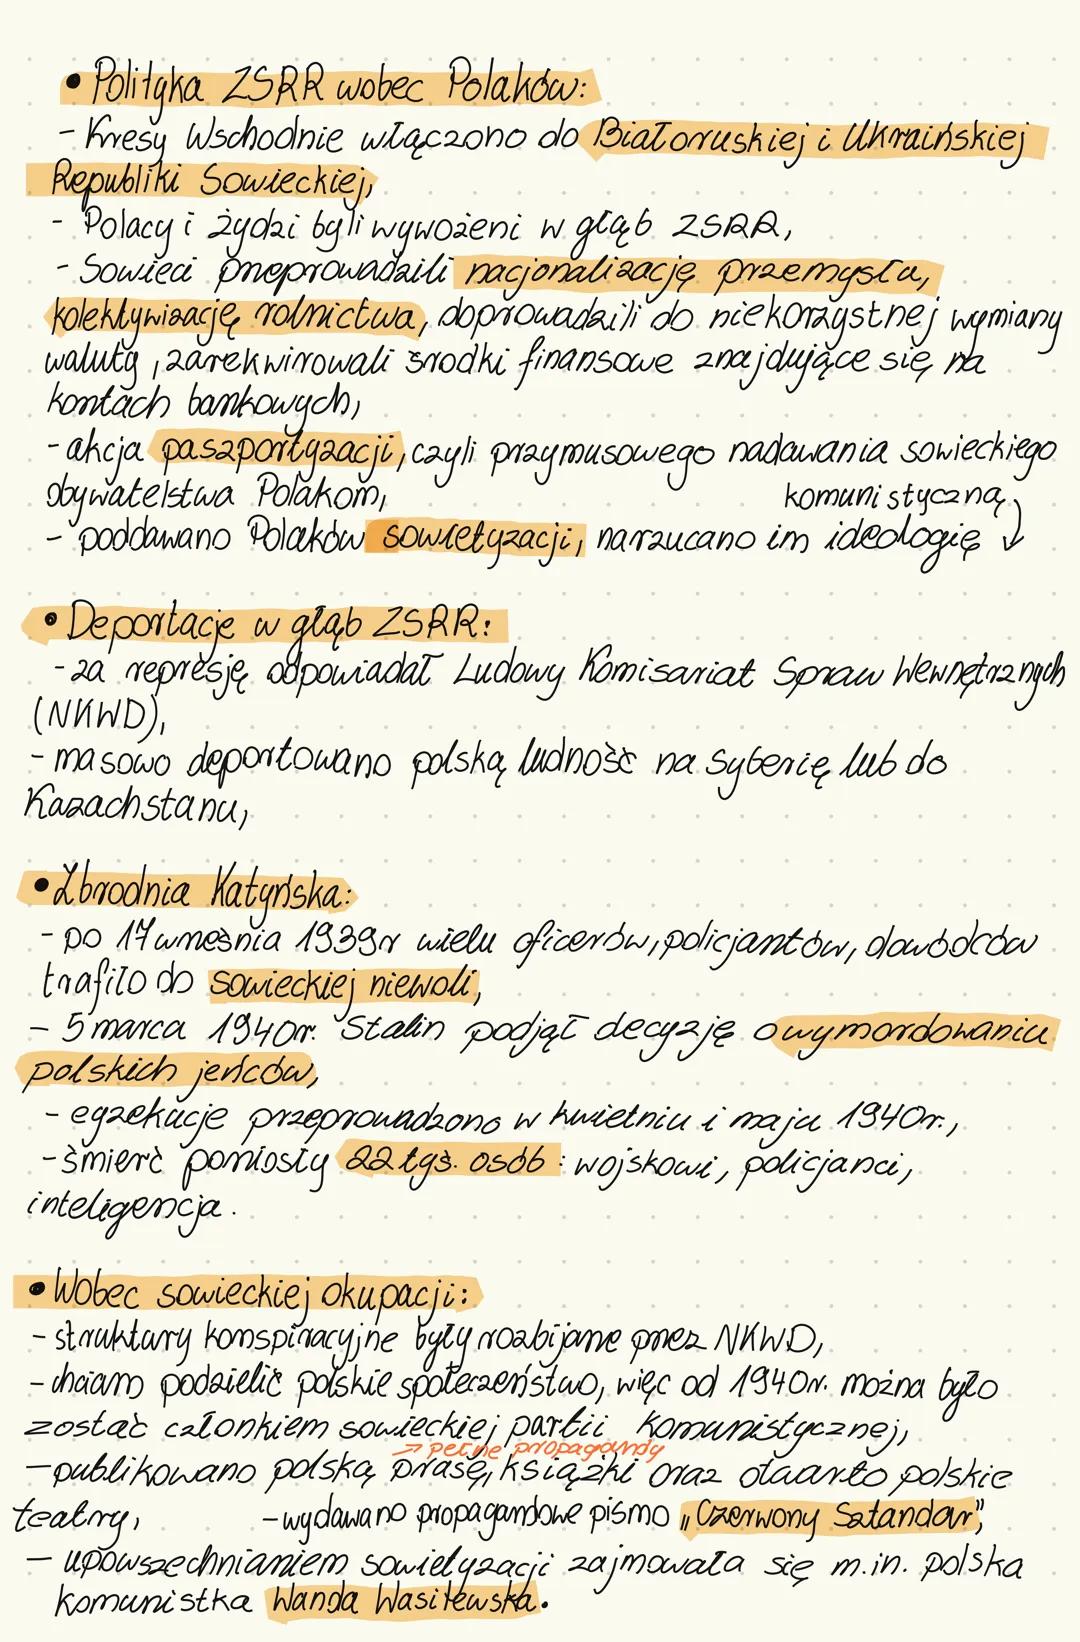 • Polityka ZSRR wobec Polaków:
- Kresy Wschodnie włączono do Białoruskiej i Ukraińskiej
Republiki Sowieckiej,
- Polacy i żydzi byli wywożeni w głąb ZSRR,
- Sowieci przeprowadzili nacjonalizację przemysłu,
kolektywizację rolnictwa, doprowadzili do niekorzystnej wymiany
waluty, zarekwirowali środki finansowe znajdujące się na
kontach bankowych,
- akcja paszportyzacji, czyli przymusowego nadawania sowieckiego
obywatelstwa Polakom,
- poddawano Polaków sowietyzacji, narzucano im ideologię komunistyczną
• Deportacje w głąb ZSRR:
- za represję odpowiadał Ludowy Komisariat Spraw Wewnętrznych
(NKWD),
- masowo deportowano polską ludność na Syberię lub do
Kazachstanu,
• Zbrodnia Katyńska:
- po 17 września 1939r wielu oficerów, policjantów, dowódców
trafiło do sowieckiej niewoli,
- 5 marca 1940r. Stalin podjął decyzję o wymordowaniu
polskich jeńców,
- egzekucje przeprowadzono w kwietniu i maju 1940r.,
- śmierć poniosły 22 tyś. osób: wojskowi, policjanci,
inteligencja.
• Wobec sowieckiej okupacji:
- struktury konspiracyjne były rozbijane przez NKWD,
- chciano podzielić polskie społeczeństwo, więc od 1940r. można było
zostać członkiem sowieckiej partii komunistycznej,
→ pełne propagandy
- publikowano polską prasę, książki oraz otwarto polskie
teatry,
- wydawano propagandowe pismo „Czerwony Sztandar",
- upowszechnianiem sowietyzacji zajmowała się m.in. polska
komunistka Wanda Wasilewska.